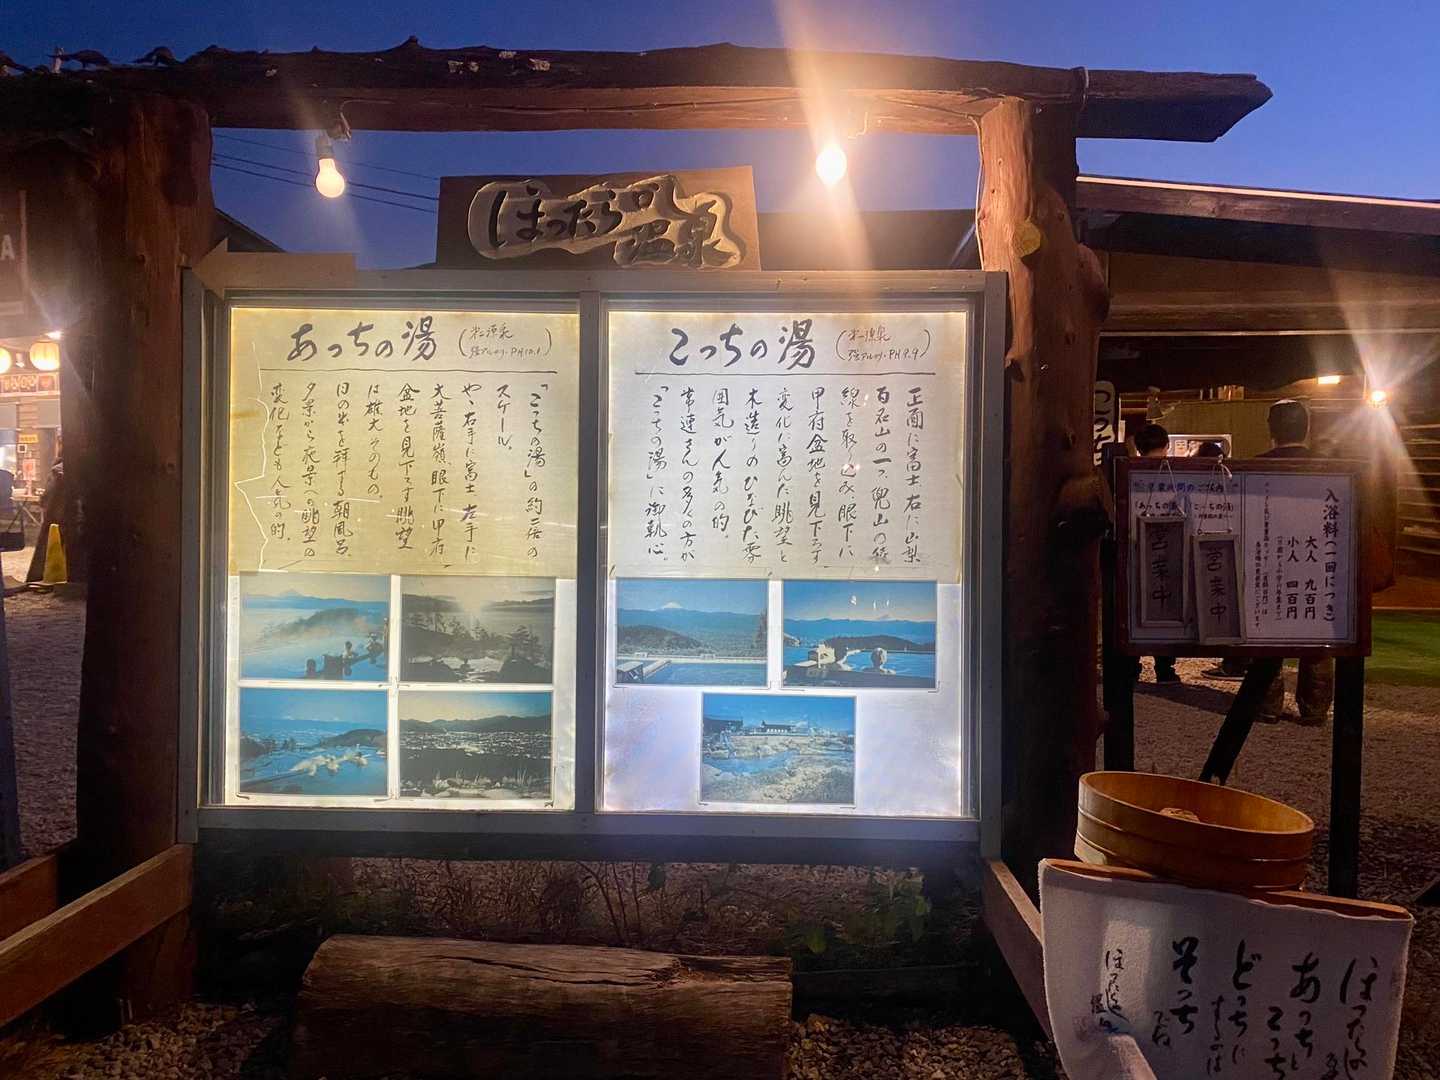 ほったらかし
温泉
あっちの湯
(第二源泉
強アルカリ・PH10.1)
「こっちの湯」の約二倍の
スケール。
やや右手に富士 左手に
大菩薩嶺、眼下に甲府
盆地を見下ろす眺望
は雄大そのもの。
日の出を拝する朝風呂、
夕景から夜景への眺望の
変化なども人気の的。
こっちの湯
(第一源泉
強アルカリ・PH9.9)
正面に富士 右に山梨
百名山の一つ、兜山の稜
線を取り込み眼下に
甲府盆地を見下ろす
変化に富んだ眺望と
木造りのひなびた雰
囲気が人気の的。
常連さんの多くの方が
「こっちの湯」に御執心。
入浴料(一回につき)
大人 九百円
小人 四百円
営業時間のご案内
あっちの湯
こっちの湯
営業中
営業中
ほったらか
あっちと
こっち
どっちに
するのは
そっち
だね
ほったらかし
温泉